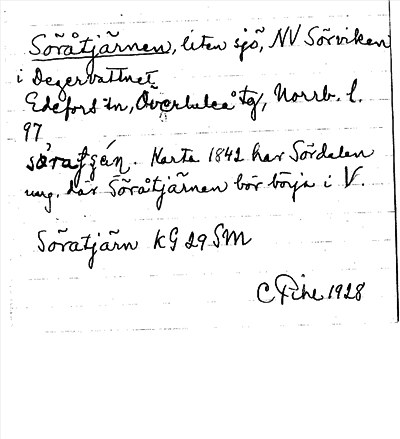 Söråtjärnen, liten sjö, NV Sörviken
i Degervattnet
Edefors sn, Överluleå tg, Norrb. l.
97
Karta 1842 har Sördalen
ung. där Söråtjärnen bör börja i V.
Söratjärn KG 29 SM
C Pihl 1928